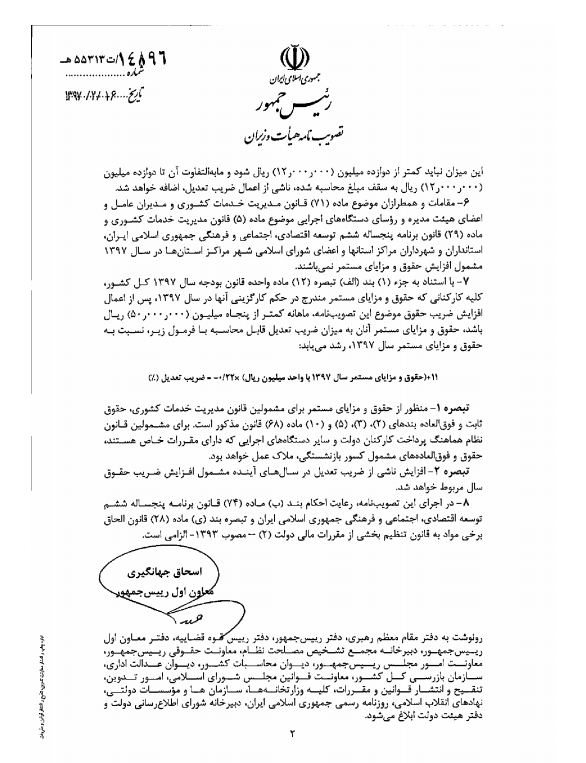 ۱۴۸۹۶/ت۵۵۳۱۳هـ
شماره
جمهوری اسلامی ایران
تاریخ
رئیس جمهور
تصویب نامه هیأت وزیران
این میزان نباید کمتر از دوازده میلیون (۱۲٫۰۰۰٫۰۰۰) ریال شود و مابه‌التفاوت آن تا دوازده میلیون
(۱۲٫۰۰۰٫۰۰۰) ریال به سقف مبلغ محاسبه شده، ناشی از اعمال ضریب تعدیل، اضافه خواهد شد.
۶- مقامات و همطرازان موضوع ماده (۷۱) قانون مدیریت خدمات کشوری و مدیران عامل و
اعضای هیئت مدیره و رؤسای دستگاه‌های اجرایی موضوع ماده (۵) قانون مدیریت خدمات کشوری و
ماده (۲۹) قانون برنامه پنجساله ششم توسعه اقتصادی، اجتماعی و فرهنگی جمهوری اسلامی ایران،
استانداران و شهرداران مراکز استانها و اعضای شورای اسلامی شهر مراکز استان‌ها در سال ۱۳۹۷
مشمول افزایش حقوق و مزایای مستمر نمی‌باشند.
۷- با استناد به جزء (۱) بند (الف) تبصره (۱۲) ماده واحده قانون بودجه سال ۱۳۹۷ کل کشور،
کلیه کارکنانی که حقوق و مزایای مستمر مندرج در حکم کارگزینی آنها در سال ۱۳۹۷، پس از اعمال
افزایش ضریب حقوق موضوع این تصویب‌نامه، ماهانه کمتر از پنجاه میلیون (۵۰٫۰۰۰٫۰۰۰) ریال
باشد، حقوق و مزایای مستمر آنان به میزان ضریب تعدیل قابل محاسبه با فرمول زیر، نسبت به
حقوق و مزایای مستمر سال ۱۳۹۷، رشد می‌یابد:
۱۱+(حقوق و مزایای مستمر سال ۱۳۹۷ با واحد میلیون ریال) ×۰/۲۲- = ضریب تعدیل (٪)
تبصره ۱- منظور از حقوق و مزایای مستمر برای مشمولین قانون مدیریت خدمات کشوری، حقوق
ثابت و فوق‌العاده بندهای (۲)، (۳)، (۵) و (۱۰) ماده (۶۸) قانون مذکور است. برای مشمولین قانون
نظام هماهنگ پرداخت کارکنان دولت و سایر دستگاه‌های اجرایی که دارای مقررات خاص هستند،
حقوق و فوق‌العاده‌های مشمول کسور بازنشستگی، ملاک عمل خواهد بود.
تبصره ۲- افزایش ناشی از ضریب تعدیل در سال‌های آینده مشمول افزایش ضریب حقوق
سال مربوط خواهد شد.
۸- در اجرای این تصویب‌نامه، رعایت احکام بند (ب) ماده (۷۴) قانون برنامه پنجساله ششم
توسعه اقتصادی، اجتماعی و فرهنگی جمهوری اسلامی ایران و تبصره بند (ی) ماده (۲۸) قانون الحاق
برخی مواد به قانون تنظیم بخشی از مقررات مالی دولت (۲) –مصوب ۱۳۹۳- الزامی است.
اسحاق جهانگیری
معاون اول رییس‌جمهور
رونوشت به دفتر مقام معظم رهبری، دفتر رییس‌جمهور، دفتر رییس قوه قضاییه، دفتر معاون اول
رییس‌جمهور، دبیرخانه مجمع تشخیص مصلحت نظام، معاونت حقوقی رییس‌جمهور،
معاونت امور مجلس رییس‌جمهور، دیوان محاسبات کشور، دیوان عدالت اداری،
سازمان بازرسی کل کشور، معاونت قوانین مجلس شورای اسلامی، امور تدوین،
تنقیح و انتشار قوانین و مقررات، کلیه وزارتخانه‌ها، سازمان ها و مؤسسات دولتی،
نهادهای انقلاب اسلامی، روزنامه رسمی جمهوری اسلامی ایران، دبیرخانه شورای اطلاع‌رسانی دولت و
دفتر هیئت دولت ابلاغ می‌شود.
۲